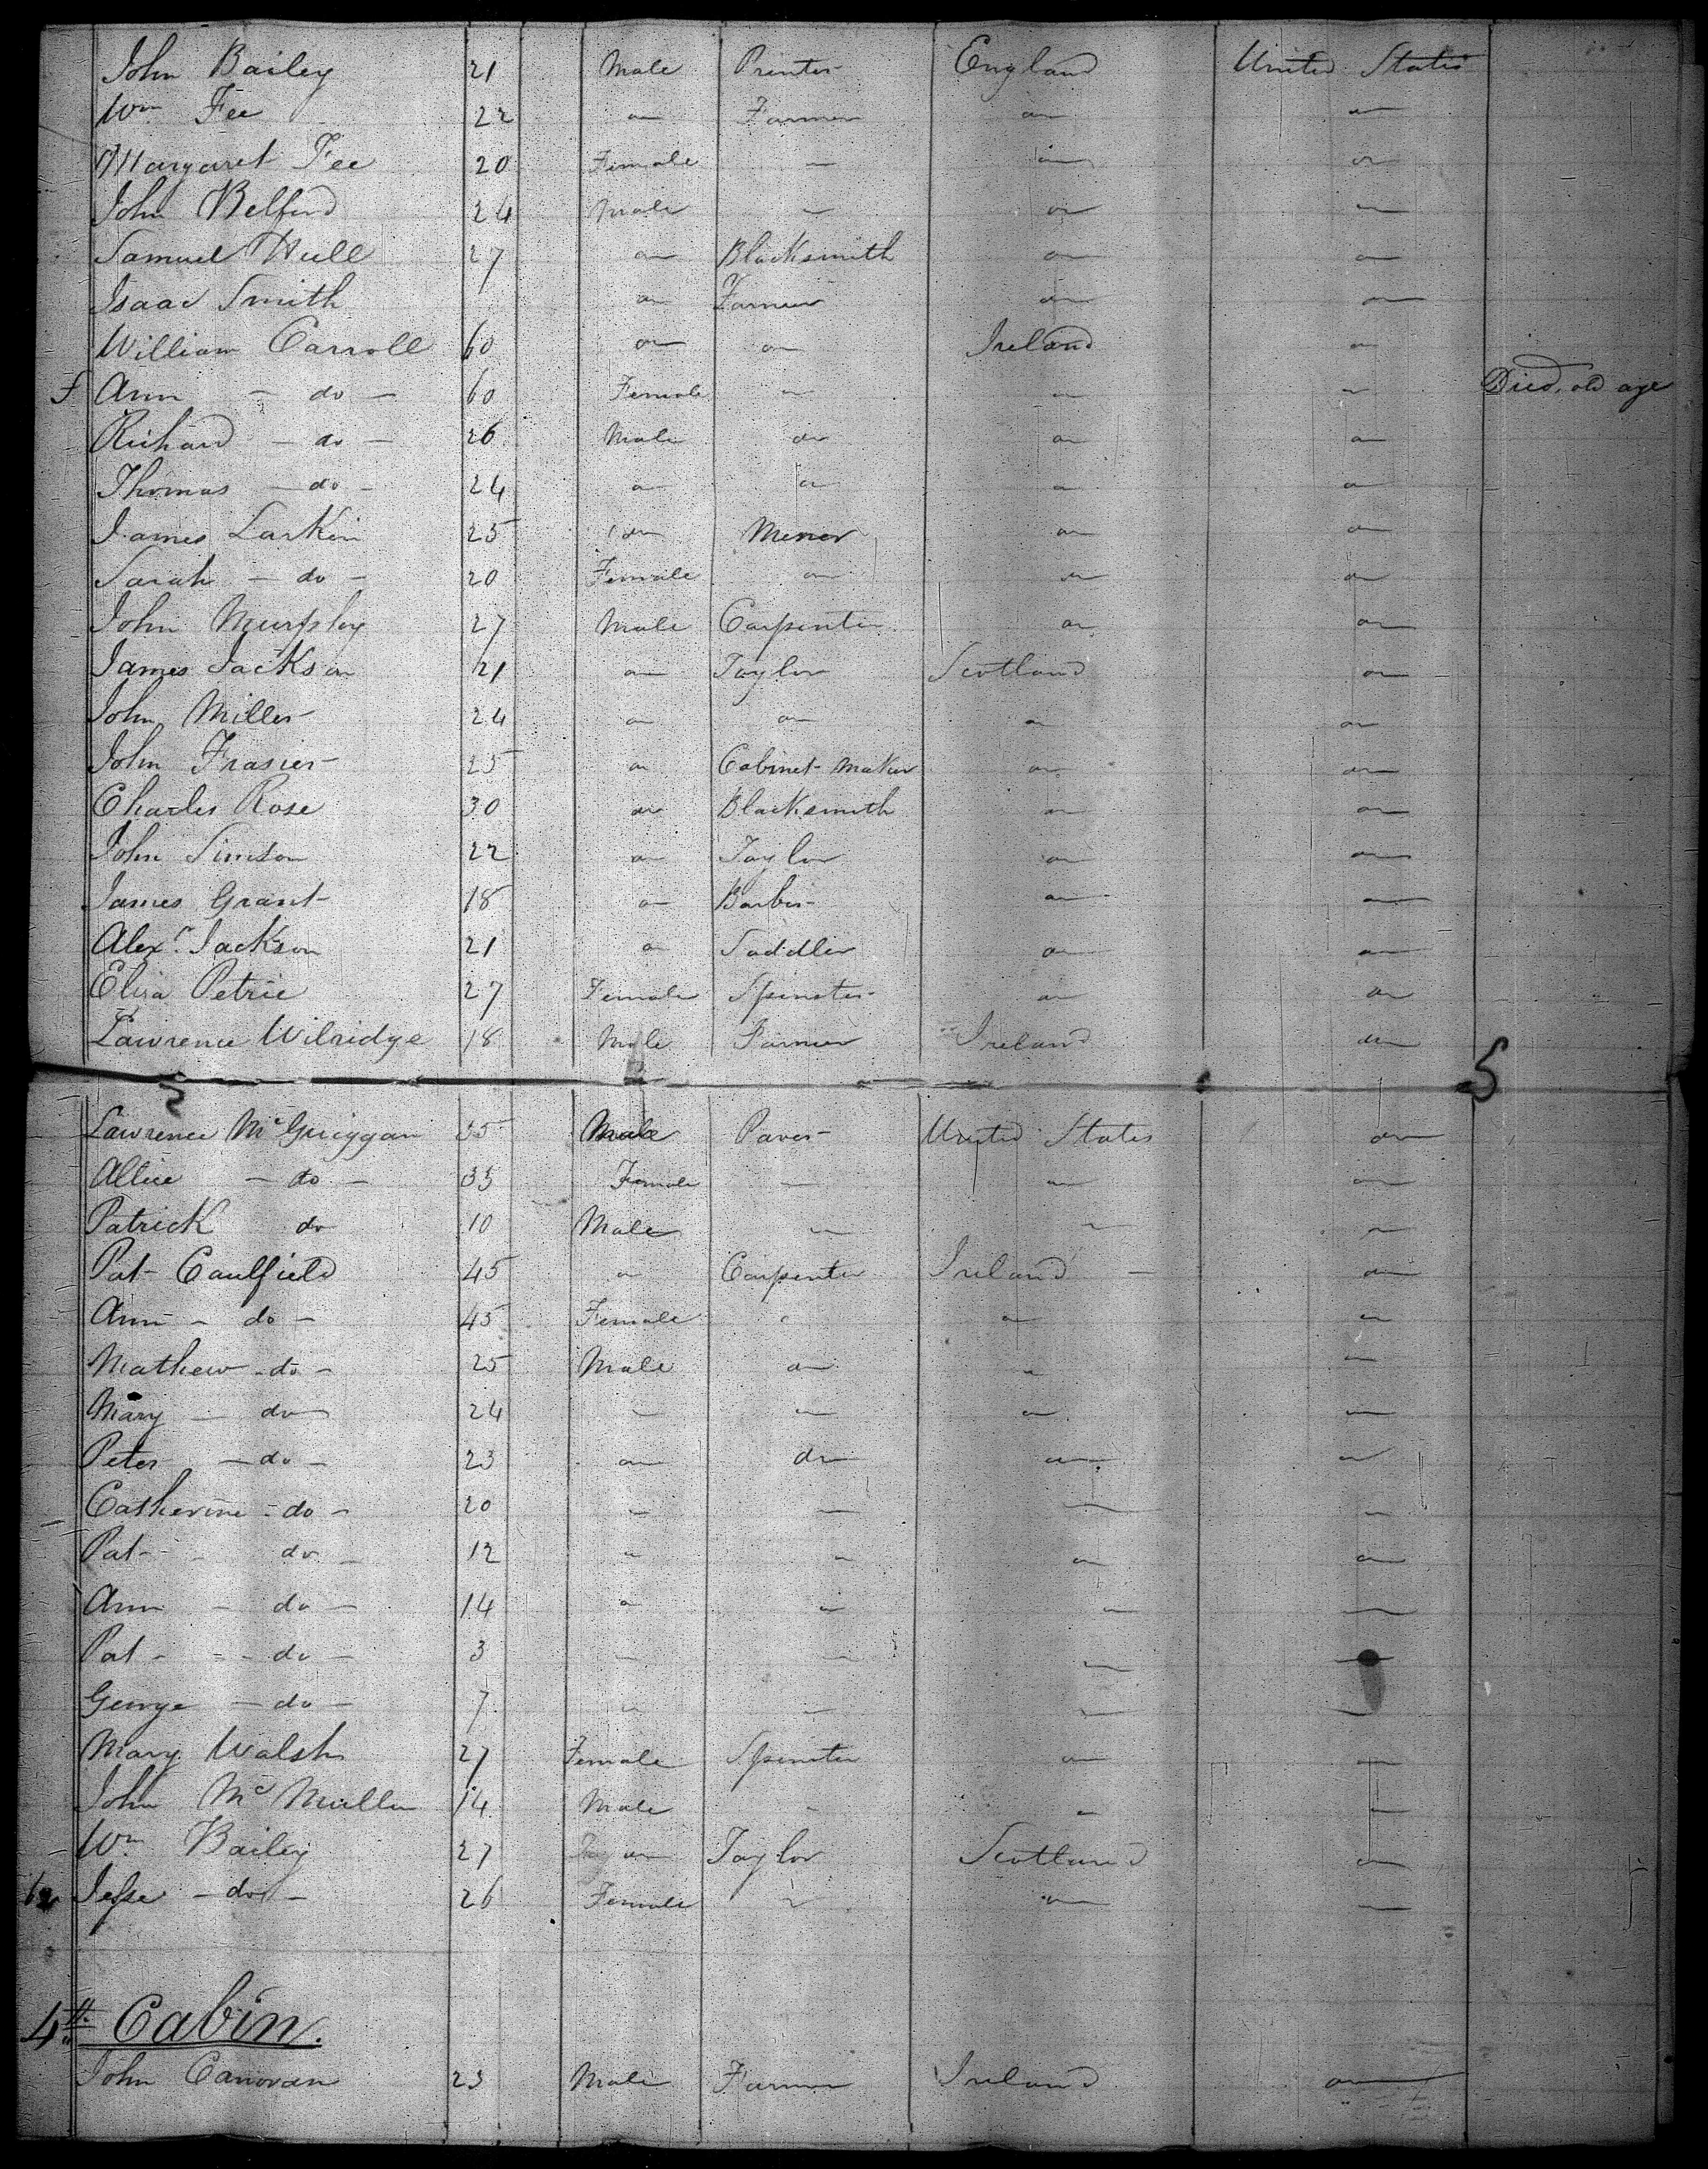 John Bailey 21 Male Printer England United States
Wm Fee 22 do Farmer do do
Margaret Fee 20 Female — do do
John Belford 24 Male — do do
Samuel Hull 27 do Blacksmith do do
Isaac Smith do Farmer do do
William Carroll 60 do do Ireland do
Ann - do - 60 Female — do — Died, old age
Richard - do - 26 Male do do do
Thomas - do - 24 do do do do
James Larkin 25 do Miner do do
Sarah - do - 20 Female do do do
John Murphy 27 Male Carpenter do do
James Jackson 21 do Taylor Scotland do
John Miller 24 do do do do
John Frasier 25 do Cabinet-maker do do
Charles Rose 30 do Blacksmith do do
John Simson 22 do Taylor do do
James Grant 18 do Barber do do
Alexr. Jackson 21 do Saddler do do
Eliza Petrie 27 Female Spinster do do
Lawrence Wilridge 18 Male Farmer Ireland do
5
Lawrence McGuiggan 35 Male Paver United States do
Allice - do - 35 Female — do do
Patrick do 10 Male — — —
Pat Caulfield 45 do Carpenter Ireland — do
Ann - do - 45 Female — do do
Mathew - do - 25 Male do — —
Mary - do 24 — — do —
Peter - do - 23 do do do do
Catherine - do - 20 — — — —
Pat - do - 12 — — do do
Ann - do - 14 — — — —
Pat - do - 3 — — — —
George - do - 7 — — — —
Mary Walsh 27 Female Spinster do do
John McMullen 14 Male — — —
Wm Bailey 27 do Taylor Scotland do
Jesse - do - 26 Female — do —
4th Cabin.
John Canovan 23 Male Farmer Ireland do